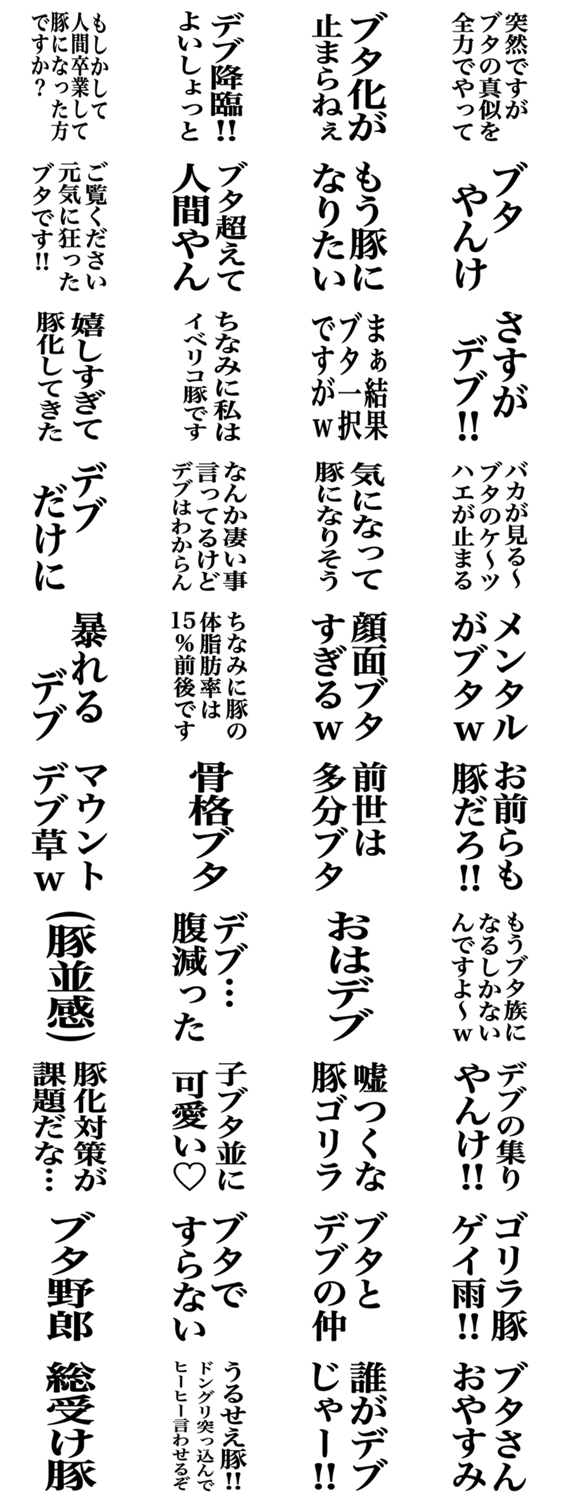 突然ですが
ブタの真似を
全力でやって
ブタ化が
止まらねぇ
デブ降臨!!
よいしょっと
もしかして
人間卒業して
豚になった方
ですか?
ブタ
やんけ
もう豚に
なりたい
ブタ超えて
人間やん
ご覧ください
元気に狂った
ブタです!!
さすが
デブ!!
まぁ結果
ブタ一択
ですがw
ちなみに私は
イベリコ豚です
嬉しすぎて
豚化してきた
バカが見る〜
ブタのケ〜ツ
ハエが止まる
気になって
豚になりそう
なんか凄い事
言ってるけど
デブはわからん
デブ
だけに
メンタル
がブタw
顔面ブタ
すぎるw
ちなみに豚の
体脂肪率は
15%前後です
暴れる
デブ
お前らも
豚だろ!!
前世は
多分ブタ
骨格ブタ
マウント
デブ草w
もうブタ族に
なるしかない
んですよ〜w
おはデブ
デブ…
腹減った
(豚並感)
デブの集り
やんけ!!
嘘つくな
豚ゴリラ
子ブタ並に
可愛い♡
豚化対策が
課題だな…
ゴリラ豚
ゲイ雨!!
ブタと
デブの仲
ブタで
すらない
ブタ野郎
ブタさん
おやすみ
誰がデブ
じゃー!!
うるせえ豚!!
ドングリ突っ込んで
ヒーヒー言わせるぞ
総受け豚